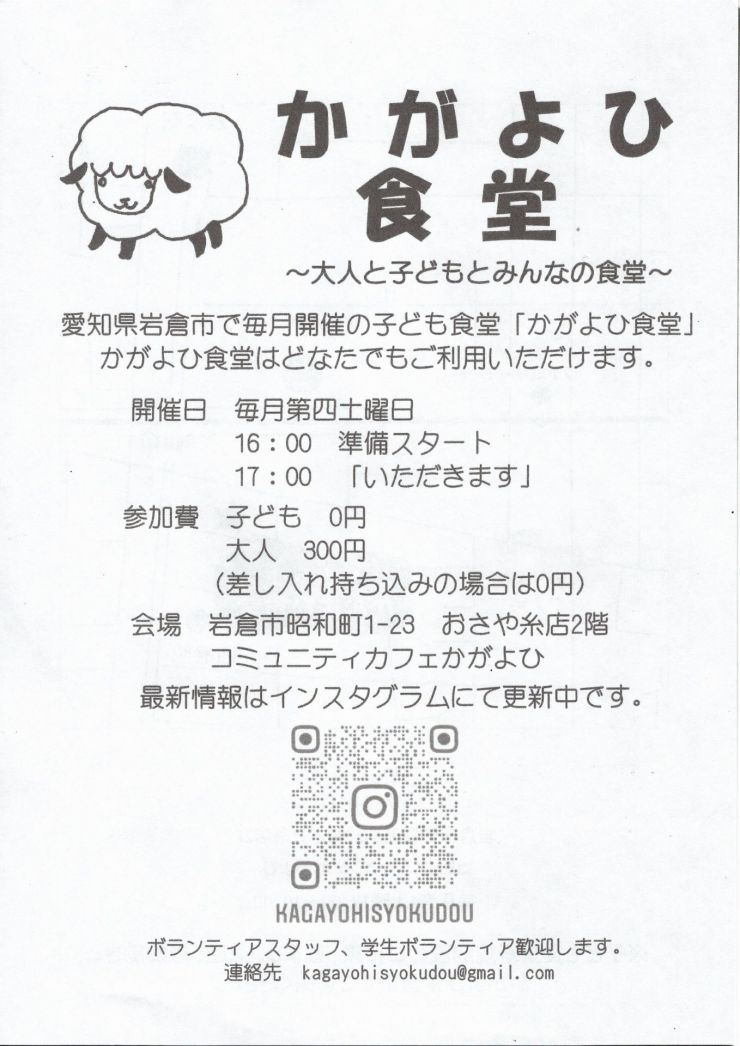 かがよひ
食堂
～大人と子どもとみんなの食堂～
愛知県岩倉市で毎月開催の子ども食堂「かがよひ食堂」
かがよひ食堂はどなたでもご利用いただけます。
開催日　毎月第四土曜日
16：00　準備スタート
17：00　「いただきます」
参加費　子ども　0円
大人　300円
（差し入れ持ち込みの場合は0円）
会場　岩倉市昭和町1-23　おさや糸店2階
コミュニティカフェかがよひ
最新情報はインスタグラムにて更新中です。
KAGAYOHISYOKUDOU
ボランティアスタッフ、学生ボランティア歓迎します。
連絡先　kagayohisyokudou@gmail.com